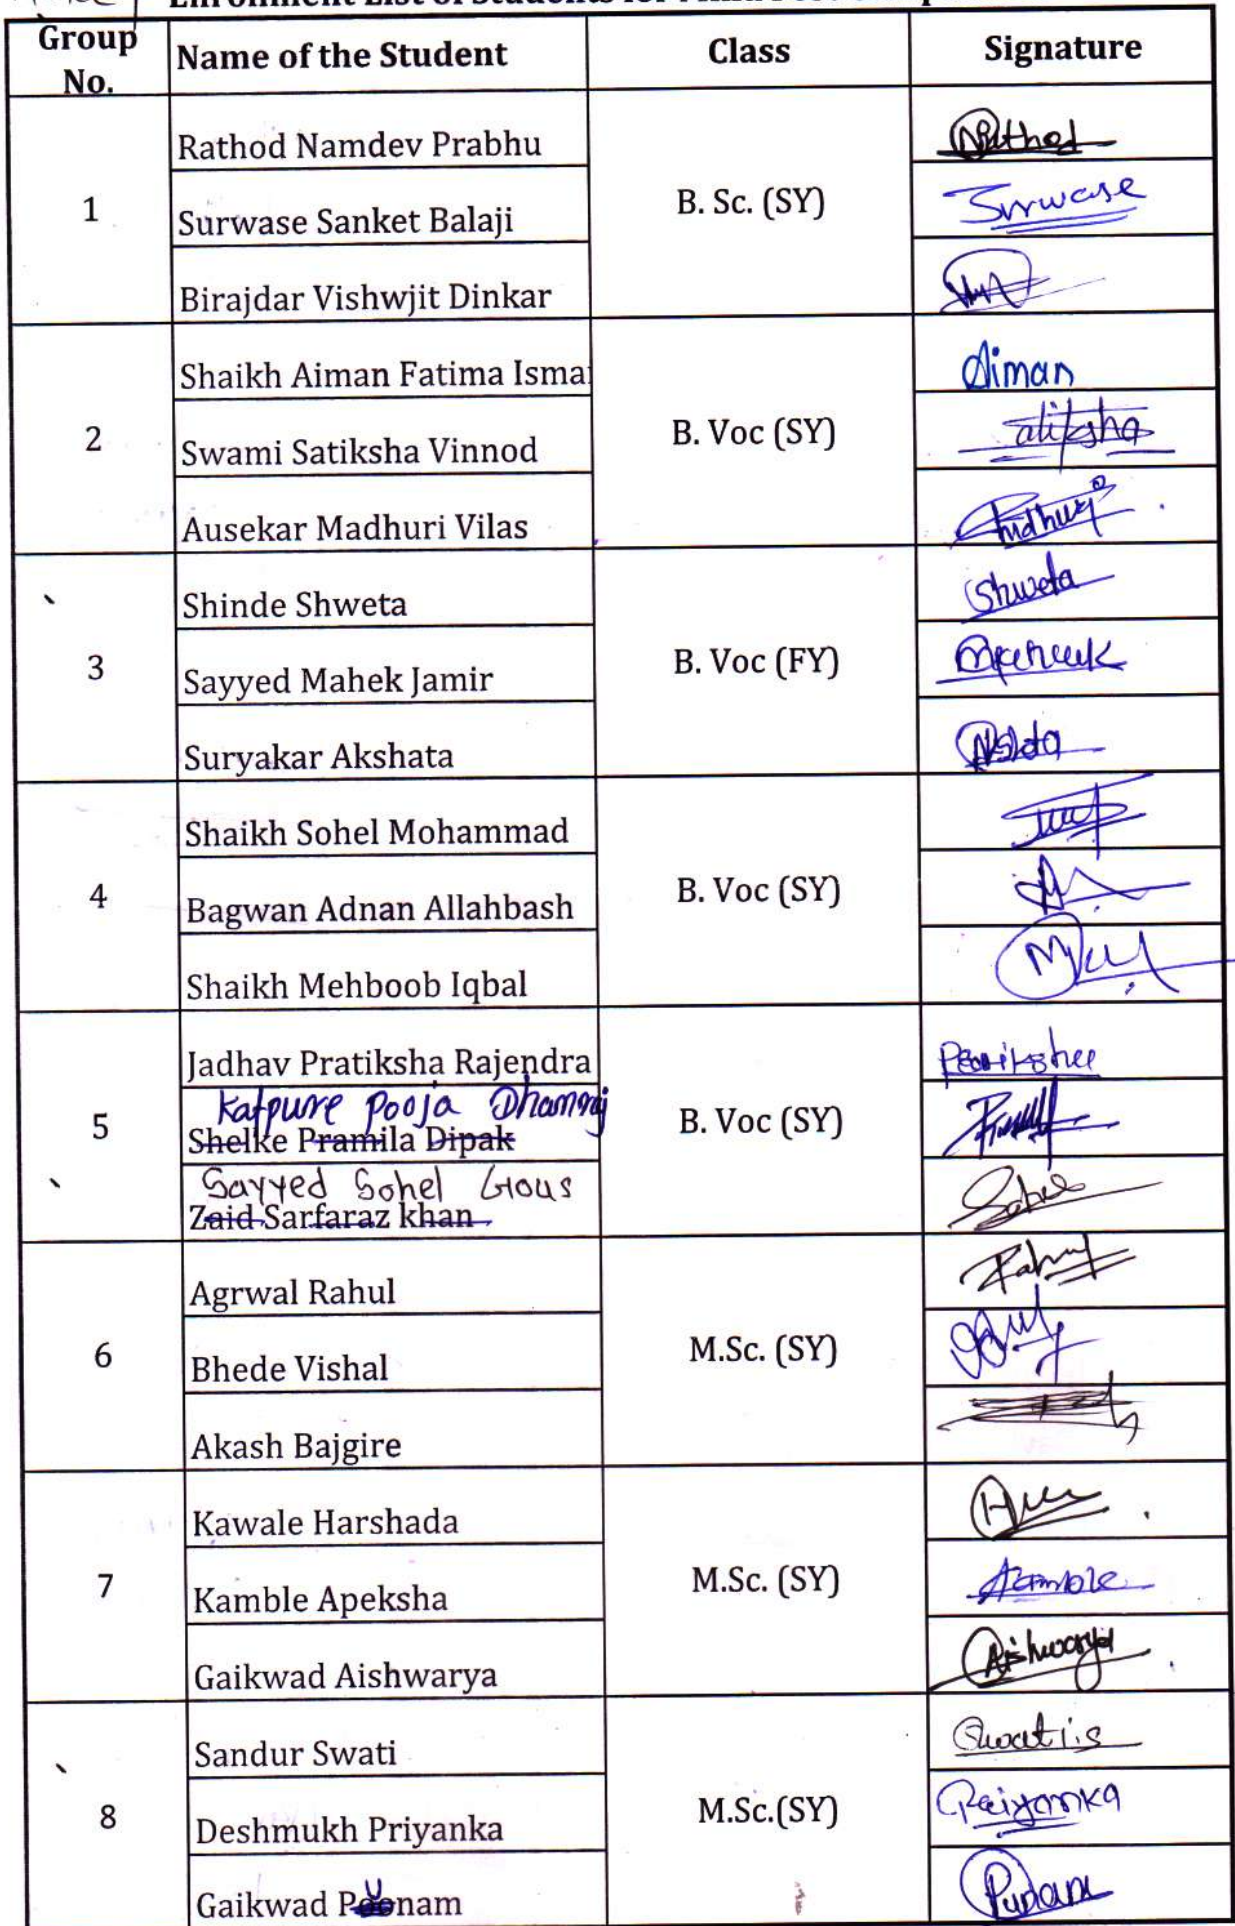 Group No. Name of the Student Class Signature
1 B. Sc. (SY)
Rathod Namdev Prabhu Rathod
Surwase Sanket Balaji Surwase
Birajdar Vishwjit Dinkar
2 B. Voc (SY)
Shaikh Aiman Fatima Ismai Aiman
Swami Satiksha Vinnod
Ausekar Madhuri Vilas Madhuri
3 B. Voc (FY)
Shinde Shweta Shweta
Sayyed Mahek Jamir
Suryakar Akshata
4 B. Voc (SY)
Shaikh Sohel Mohammad
Bagwan Adnan Allahbash
Shaikh Mehboob Iqbal
5 B. Voc (SY)
Jadhav Pratiksha Rajendra
Katpure Pooja Dhanraj
Shelke Pramila Dipak
Sayyed Sohel Gous
Zaid Sarfaraz khan
6 M.Sc. (SY)
Agrwal Rahul Rahul
Bhede Vishal
Akash Bajgire
7 M.Sc. (SY)
Kawale Harshada
Kamble Apeksha Kamble
Gaikwad Aishwarya Aishwarya
8 M.Sc.(SY)
Sandur Swati Swati.s
Deshmukh Priyanka Priyanka
Gaikwad Punam Punam